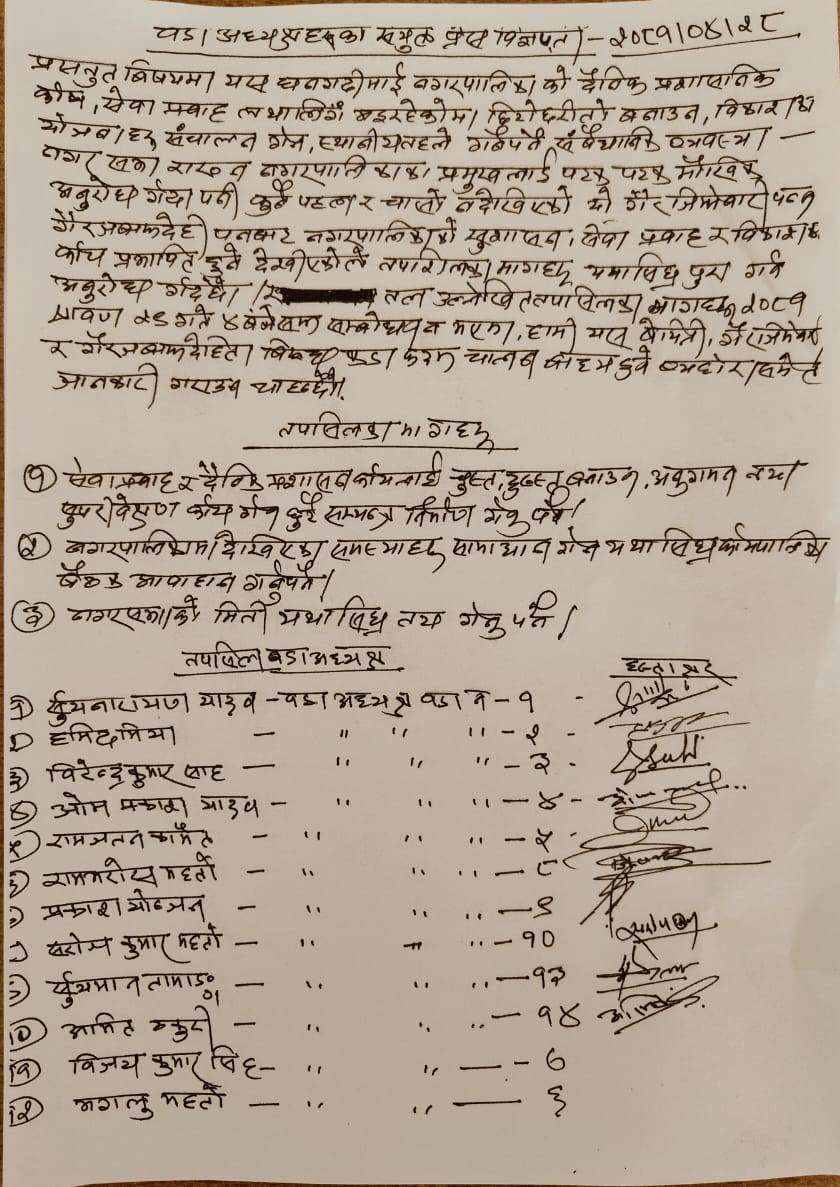 वडा अध्यक्षहरुका संयुक्त प्रेस विज्ञप्ती - २०८१।०४।२८
प्रस्तुत विषयमा यस धनगढीमाई नगरपालिका को दैनिक प्रशासनिक
सेवा प्रवाह बनाउन, विकास
योजनाहरु संचालन गर्न, स्थानीय तहले गर्नुपर्ने संवैधानिक व्यवस्था
नगर सभा राख्न नगरपालिकाका प्रमुखलाई पटक पटक मौखिक
अनुरोध गर्दा पनी कुनै पहल र चासो नदेखिएको यो गैर जिम्मेवारी पन
गैर जवाफदेही पनबाट नगरपालिकाको सुशासन, सेवा प्रवाह र विकास
कार्य प्रभावित हुने देखीएकोले तपशिलका मागहरु यथासिघ्र पुरा गर्न
अनुरोध गर्दछौ। तल उल्लेखित तपसिलका मागहरु २०८१
श्रावण २९ गते ४ बजेसम्म सम्बोधन नभएमा, हामी यस बेथिती, गैरजिम्मेवार
र गैरजवाफदेहिता बिरुद्ध कडा कदम चाल्न बाध्य हुने व्यहोरा समेत
जानकारी गराउन चाहन्छौं।
तपसिलका मागहरु
१ सेवा प्रवाह र दैनिक प्रशासन कार्यलाई चुस्त, दुरुस्त बनाउन, अनुगमन तथा
सुपरीवेक्षण कार्य गर्न छुट्टै सम्यन्त्र निर्माण गर्नु पर्ने।
२ नगरपालिकामा देखिएका समस्याहरु समाधान गर्न यथासिघ्र कार्यपालिका
बैठक आवाहान गर्नुपर्ने।
३ नगरसभाको मिती यथासिघ्र तय गर्नु पर्ने।
तपसिल वडा अध्यक्ष हस्ताक्षर
१ सुर्यनारायण यादव - वडा अध्यक्ष वडा नं - १ -
२ हमिद मिया - " " " - २ -
३ विरेन्द्र कुमार साह - " " " - ३ -
४ ओम प्रकाश यादव - " " " - ४ -
५ रामजतन कामैत - " " " - ५ -
६ रामभरोस महतो - " " " - ८
७ प्रकाश योञ्जन - " " " - ९
८ सरोज कुमार महतो - " " " - १०
९ सुर्यमान तामाङ - " " " - १३
१० अमित ठकुरी - " " - १४
११ विजय कुमार सिंह - " " - ७
१२ मगलु महतो - " " - ६